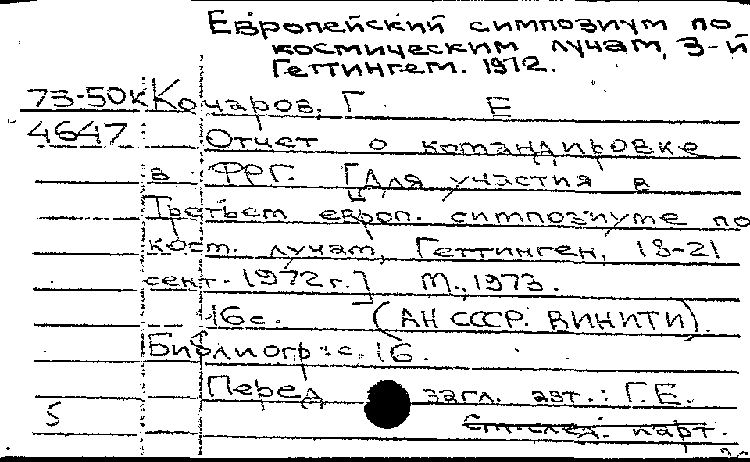 Европейский симпозиум по
космическим лучам, 3-й
Геттинген. 1972.
73-50к Кочаров, Г Е
4647 Отчет о командировке
в ФРГ. [Для участия в
Третьем европ. симпозиуме по
косм. лучам, Геттинген, 18-21
сент. 1972 г.] М., 1973.
16 с. (АН СССР. ВИНИТИ).
Библиогр: с. 16.
Перед загл. авт.: Г.Е.
5
См.след. карт.